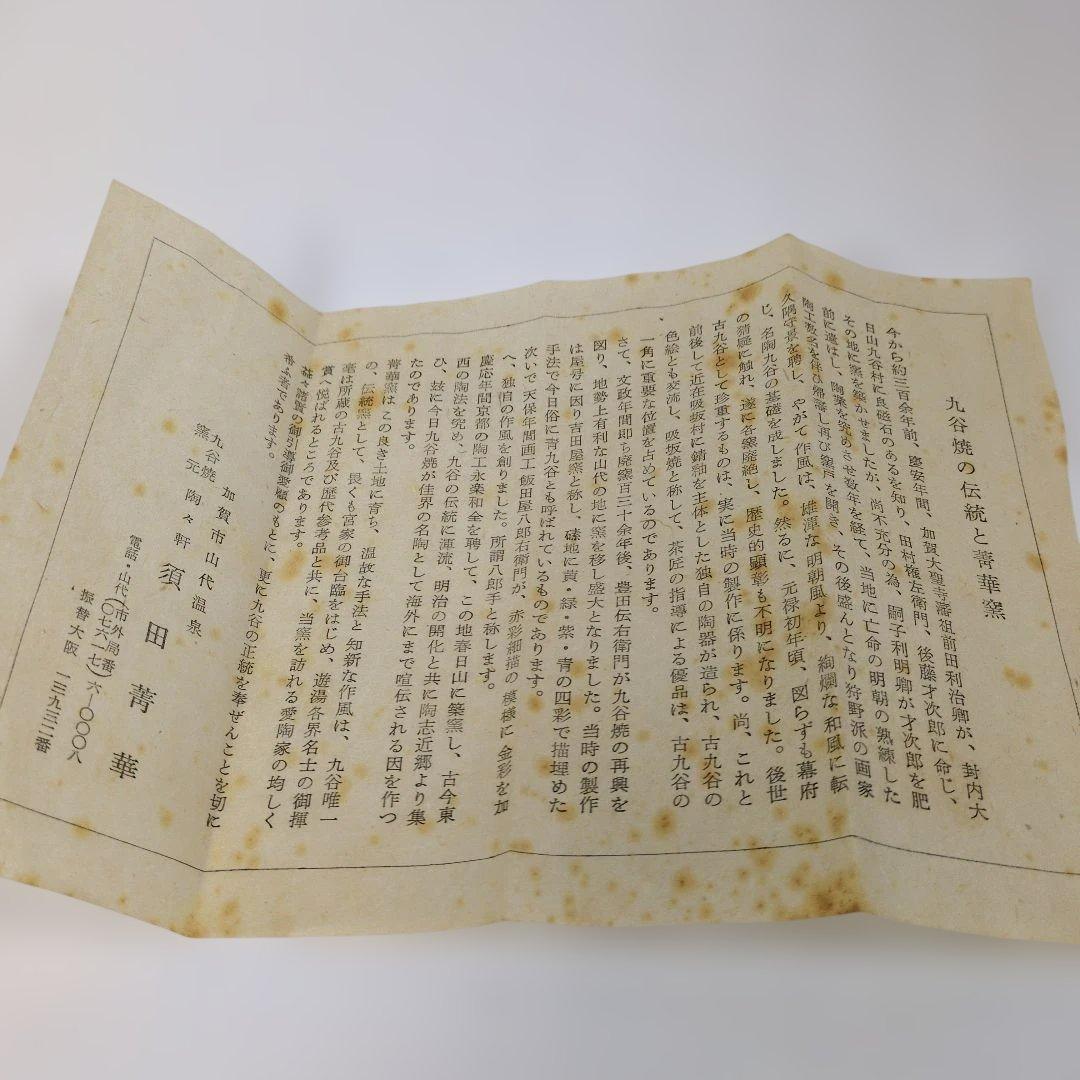 九谷焼の伝統と菁華窯
今から約三百余年前、慶安年間、加賀大聖寺藩祖前田利治卿が、封内大
日山九谷村に良磁石のあるを知り、田村権左衛門、後藤才次郎に命じ、
その地に窯を築かせましたが、尚不充分の為、嗣子利明卿が才次郎を肥
前に遣はし、陶業を究めさせ数年を経て、当地に亡命の明朝の熟練した
陶工数名を伴ひ帰藩し再び窯戸を開き、その後盛んとなり狩野派の画家
久隅守景を聘し、やがて作風は、雄渾な明朝風より、絢爛な和風に転
じ、名陶九谷の基礎を成しました。然るに、元禄初年頃、図らずも幕府
の猜疑に触れ、遂に各窯廃絶し、歴史的顕彰も不明になりました。後世
古九谷として珍重するものは、実に当時の製作に係ります。尚、これと
前後して近在吸坂村に錆釉を主体とした独自の陶器が造られ、古九谷の
色絵とも交流し、吸坂焼と称して、茶匠の指導による優品は、古九谷の
一角に重要な位置を占めているのであります。
さて、文政年間即ち廃窯百三十余年後、豊田伝右衛門が九谷焼の再興を
図り、地勢上有利な山代の地に窯を移し盛大となりました。当時の製作
は屋号に因り吉田屋窯と称し、磁地に黄・緑・紫・青の四彩で描埋めた
手法で今日俗に青九谷とも呼ばれているものであります。
次いで天保年間画工飯田屋八郎右衛門が、赤彩細描の模様に金彩を加
へ、独自の作風を創りました。所謂八郎手と称します。
慶応年間京都の陶工永楽和全を聘して、この地春日山に築窯し、古今東
西の陶法を究め、九谷の伝統に渾流、明治の開化と共に陶志近郷より集
ひ、玆に今日九谷焼が佳界の名陶として海外にまで喧伝される因を作つ
たのであります。
菁華窯はこの良き土地に育ち、温故な手法と知新な作風は、九谷唯一
の、伝統窯として、畏くも宮家の御台臨をはじめ、遊湯各界名士の御揮
毫は所蔵の古九谷及び歴代参考品と共に、当窯を訪れる愛陶家の均しく
賞へ悦ばれるところであります。
益々諸賢の御引導御愛顧のもとに、更に九谷の正統を奉ぜんことを切に
希ふ者であります。
加賀市山代温泉
九谷焼
窯元 陶々軒 須田菁華
電話・山代(市外局番〇七六一七)六―〇〇〇八
振替大阪 一三九三二番